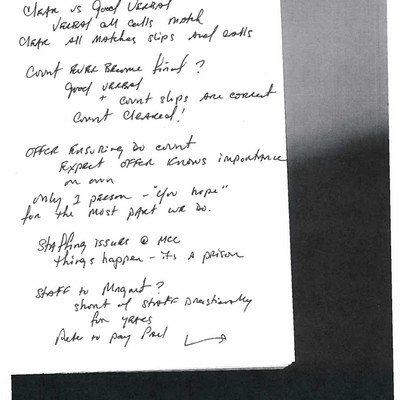 Clear vs Good Verbal
Verbal all calls match
Clear all matches slips and calls
Count Ever Become final?
Good Verbal
+ Count slips are correct
Count Cleared!
Offer ensuring do count
Expect offer knows importance
on own
only 1 person - "you hope"
for the most part we do.
Staffing issues @ MCC
things happen - its a prison
Staff to Mngmt?
short of staff drastically
for years
Refer to Day